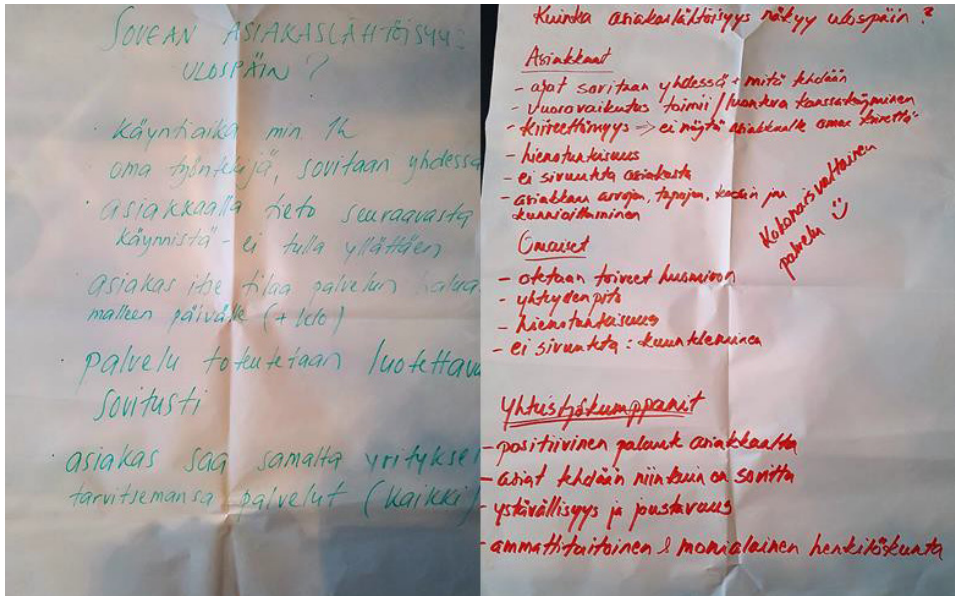 SOVEAN ASIAKASLÄHTÖISYY
ULOSPÄIN?
· Käyntiaika min 1h
oma työntekijä, sovitaan yhdessä
· asiakkaalla tieto seuraavasta
käynnistä - ei tulla yllättäen
· asiakas itse tilaa palvelun halua
malleen päivälle (+ klo)
· palvelu toteutetaan luotettava
sovitusti
· asiakas saa samalta yritykse
tarvitsemansa palvelut (kaikki)
Kuinka asiakaslähtöisyys näkyy ulospäin?
Asiakkaat
- ajat sovitaan yhdessä + mitä tehdään
- Vuorovaikutus toimii / luonteva kanssakäyminen
- kiireettömyys => ei näytä asiakkaalle omaa kiirettä
- hienotunteisuus
- ei sivuuteta asiakasta
- asiakkaan arvojen, tapojen, kodin jne
kunnioittaminen
Kokonaisvaltainen
palvelu
Omaiset
- otetaan toiveet huomioon
- yhteydenpito
- hienotunteisuus
- ei sivuuteta : kuunteleminen
Yhteistyökumppanit
- positiivinen palaute asiakkaalta
- asiat tehdään niinkuin on sovittu
- ystävällisyys ja joustavuus
- ammattitaitoinen & monialainen henkilökunta